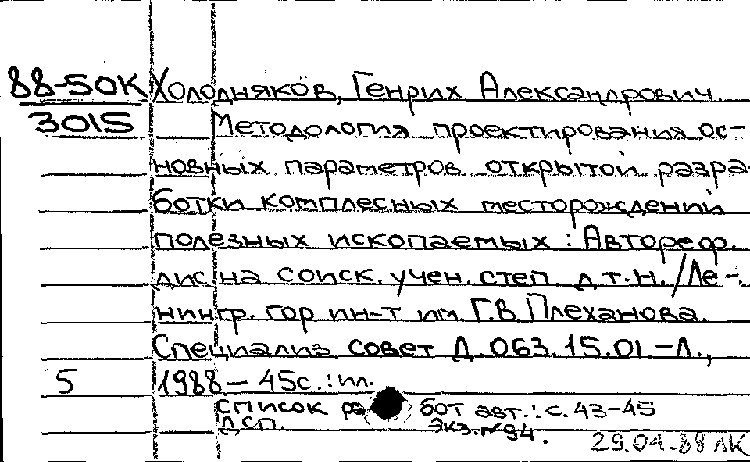 88-50К Холодняков, Генрих Александрович.
3015 Методология проектирования ос-
новных параметров открытой разра-
ботки комплесных месторождений
полезных ископаемых : Автореф.
дис на соиск. учен. степ д.т.н. / Ле-
нингр. гор ин-т им. Г.В Плеханова.
Специализ совет Д.063.15.01 -Л.,
5 1988 - 45с.: ил.
Список работ авт.: с. 43-45
ДСП. Экз.№94.
29.04.88 ЛК